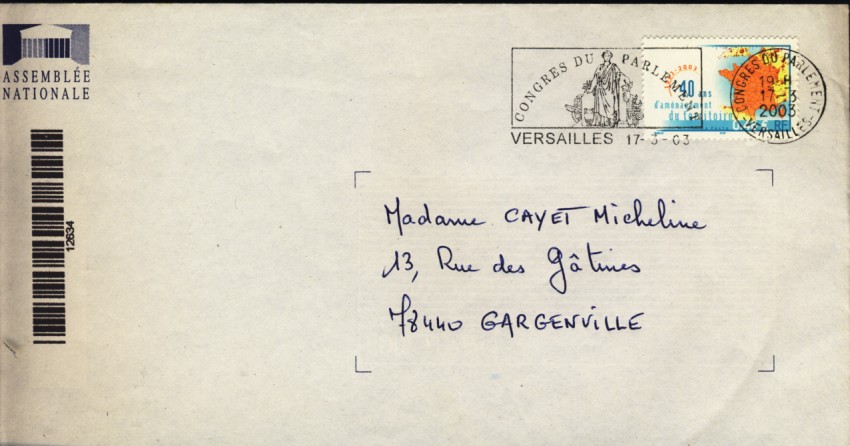 ASSEMBLÉE
NATIONALE
12634
CONGRES DU PARLEMENT
VERSAILLES 17-3-03
1963-2003
40 ans
d'aménagement
du territoire
RF
CONGRES DU PARLEMENT
19 H
17-3
2003
-VERSAILLES-
Madame CAYET Micheline
13, Rue des Gâtines
78440 GARGENVILLE